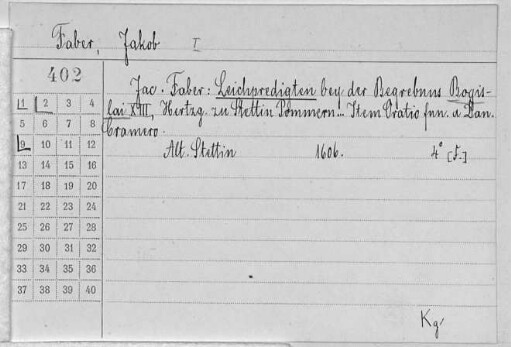 Faber, Jakob I
402
Jac. Faber: Leichpredigten bey der Begrebnus Bogis-
lai XIII, Hertzg. zu Stettin Pommern... Item Oratio fun. a Dan.
Cramero.
Alt. Stettin 1606. 4° [5.]
1 2 3 4
5 6 7 8
9 10 11 12
13 14 15 16
17 18 19 20
21 22 23 24
25 26 27 28
29 30 31 32
33 34 35 36
37 38 39 40
Kg